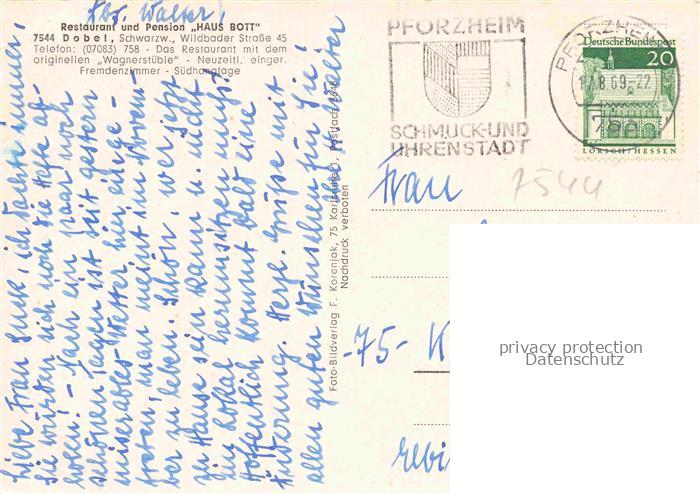 Ihr Walter!
Restaurant und Pension „HAUS BOTT"
7544 Dobel, Schwarzw., Wildbader Straße 45
Telefon: (07083) 758 - Das Restaurant mit dem
originellen „Wagnerstüble" - Neuzeitl. einger.
Fremdenzimmer - Südhanglage
Liebe Frau ich dachte immer,
Sie würden sich noch die Hefte ab-
holen! - Nach ein paar noch
schönen Tagen ist seit gestern
miserables Wetter hier einge-
treten, man meint im Novem-
ber zu leben. Schön, wer jetzt
zu Hause sein kann u. nicht
im Lokal herumsitzen muß!
Hoffentlich kommt bald eine
Änderung. Herzl. Grüße mit
allen guten Wünschen für Sie,
Foto-Bildverlag F. Korenjak, 75 Karlsruhe 1, Postfach
Nachdruck verboten
PFORZHEIM
SCHMUCK-UND
UHRENSTADT
PFORZHEIM
8.69-22
Deutsche Bundespost
20
LORSCH/HESSEN
Frau
7544
-75- K
privacy protection
Datenschutz